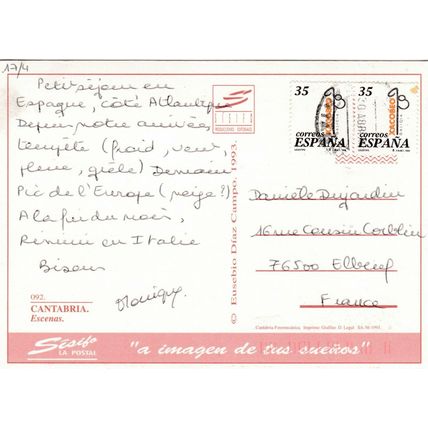 17/4
Petit séjour en
Espagne, côté Atlantique
Depuis notre arrivée,
tempête (froid, vent,
pluie, grêle) Demain
Pic de l'Europe (neige?)
A la fin du mois,
Rimini en Italie
Bisous
Monique
092.
CANTABRIA.
Escenas.
SISIFO
PRODUCCIONES EDITORIALES
© Eusebio Díaz Campo, 1993.
35
correos
ESPAÑA
35
correos
ESPAÑA
Danièle Dujardin
16 rue Cousin Corblin
76500 Elbeuf
France
Cantabria Fotomecánica, Imprime Graffax D. Legal
Sísifo
LA POSTAL
"a imagen de tus sueños"